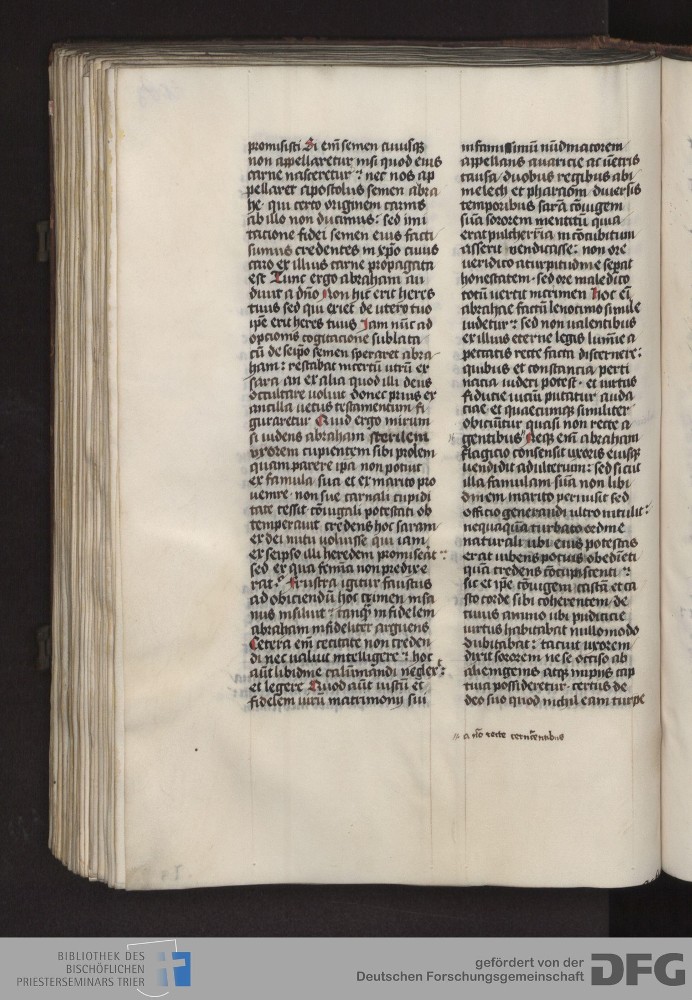 promisisti Si em̄ semen cuiusqꝫ
non appellaretur nisi quod eius
carne nasceretur : nec nos ap
pellaret apostolus semen abra
he · qui certo originem carnis
ab illo non ducimus : sed imi
tacione fidei semen eius facti
sumus credentes in xp̄o cuius
caro ex illius carne propagata
est Tunc ergo abraham au
diuit a dn̄o Non hic erit heres
tuus sed qui exiet de utero tuo
ip̄e erit heres tuus Iam nūc ad
opcionis cogitacione sublata
cū de seip̄o semen speraret abra
ham : restabat incertū utrū ex
sara an ex alia quod illi deus
occultare uoluit donec prius ex
ancilla uetus testamentum fi
guraretur Quid ergo mirum
si uidens abraham sterilem
uxorem cupientem sibi prolem
quam parere ip̄a non potuit
ex famula sua et ex marito pro
uenire · non sue carnali cupidi
tate cessit cōiugali potestati ob
temperauit credens hoc saram
ex dei nutu uoluisse qui iam
ex seipso illi heredem promiserat :
sed ex qua femīa non predixe
rat : Frustra igitur faustus
ad obiciendū hoc crimen insa
nus insiluit : tanqꝫ infidelem
abraham infideliter arguens
Cetera em̄ cecitate non creden
di nec ualuit intelligere : hoc
aūt libidine calūniandi neglex :
et legere Quod aūt iustū et
fidelem uirū matrimonij sui
infamissimū nūdinatorem
appellans auaricie ac uentris
causa duobus regibus abi
melech et pharaoni diuersis
temporibus sarā cōiugem
suā sororem mentitū quia
erat pulcherria in cōcubitum
asserit uendicasse : non ore
ueridico a turpitudine sepat
honestatem · sed ore maledico
totū uertit in crimen Hoc ei
abrahae factū lenocinio simile
uidetur : sed non ualentibus
ex illius eterne legis lumīe a
peccatis recte facta discernere :
quibus et constancia perti
nacia uideri potest · et uirtus
fiducie uiciū putatur auda
ciae et quaecumqꝫ similiter
obiciūtur quasi non recte a
gentibus Neqꝫ em̄ abraham
flagicio consensit uxoris eiusqꝫ
uendidit adulterium : sed sicut
illa famulam suā non libi
dinem marito permisit sed
officio generandi ultro intulit :
nequaquā turbato ordine
naturali ubi eius potestas
erat iubens pocius obediēti
quā credens cōcupiscenti :
sic et ip̄e cōiugem castā et ca
sto corde sibi coherentem · de
cuius animo ubi pudicicie
uirtus habitabat nullo modo
dubitabat : tacuit uxorem /
dixit sororem ne se occiso ab
alienigenis atqꝫ impijs cap
tiua possideretur · certus de
deo suo quod nichil eam turpe
a nō recte cernentibus
BIBLIOTHEK DES
BISCHÖFLICHEN
PRIESTERSEMINARS TRIER
gefördert von der
Deutschen Forschungsgemeinschaft
DFG